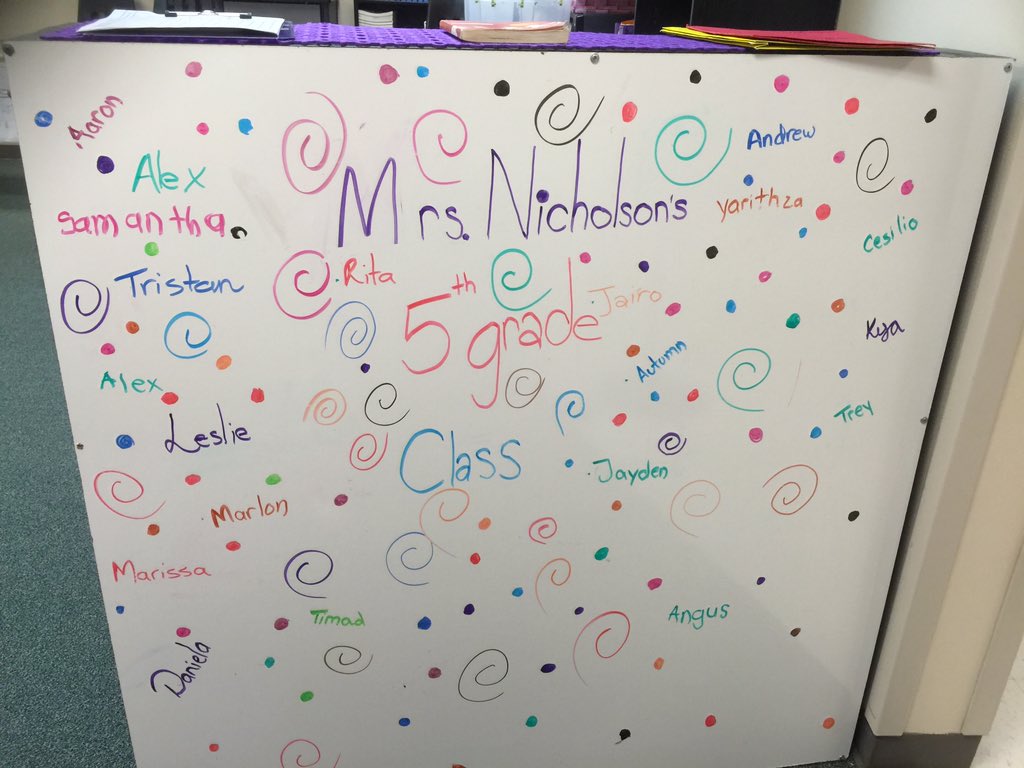 Aaron
Alex
Samantha
Tristan
Alex
Leslie
Marlon
Marissa
Timad
Daniela
Mrs. Nicholson's
Rita
5th grade
Jairo
Class
Andrew
yarithza
Cesilio
Kya
Autumn
Trey
Jayden
Angus